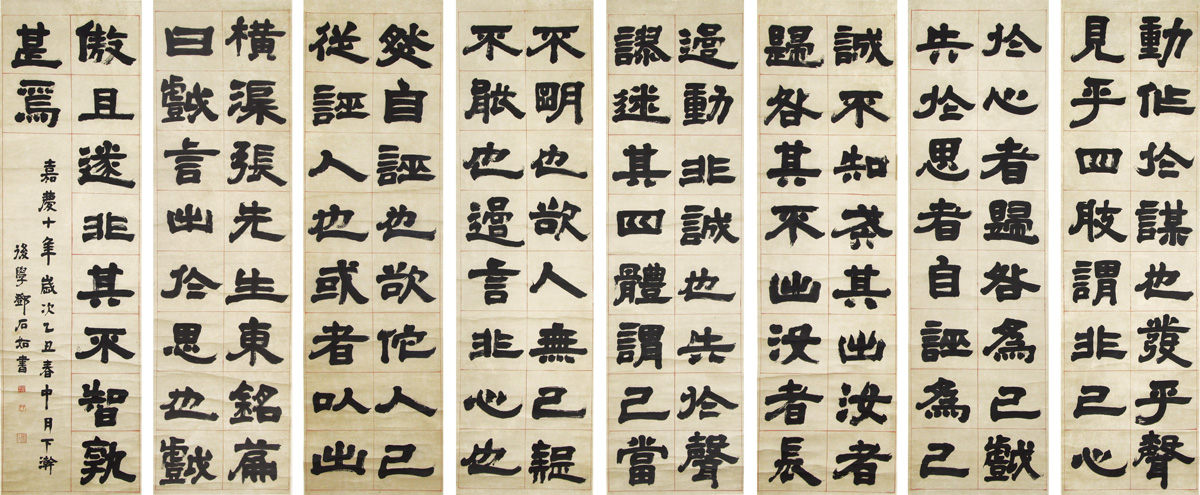 橫渠張先生東銘篇
曰戲言出於思也戲
動作於謀也發乎聲
見乎四肢謂非己心
不明也欲人無己疑
不能也過言非心也
過動非誠也失於聲
謬迷其四體謂己當
然自誣也欲他人己
從誣人也或者以出
於心者歸咎為己戲
失於思者自誣為己
誠不知戒其出汝者
歸咎其不出汝者長
傲且遂非其不智孰
甚焉
嘉慶十年歲次乙丑春中月下澣
後學鄧石如書